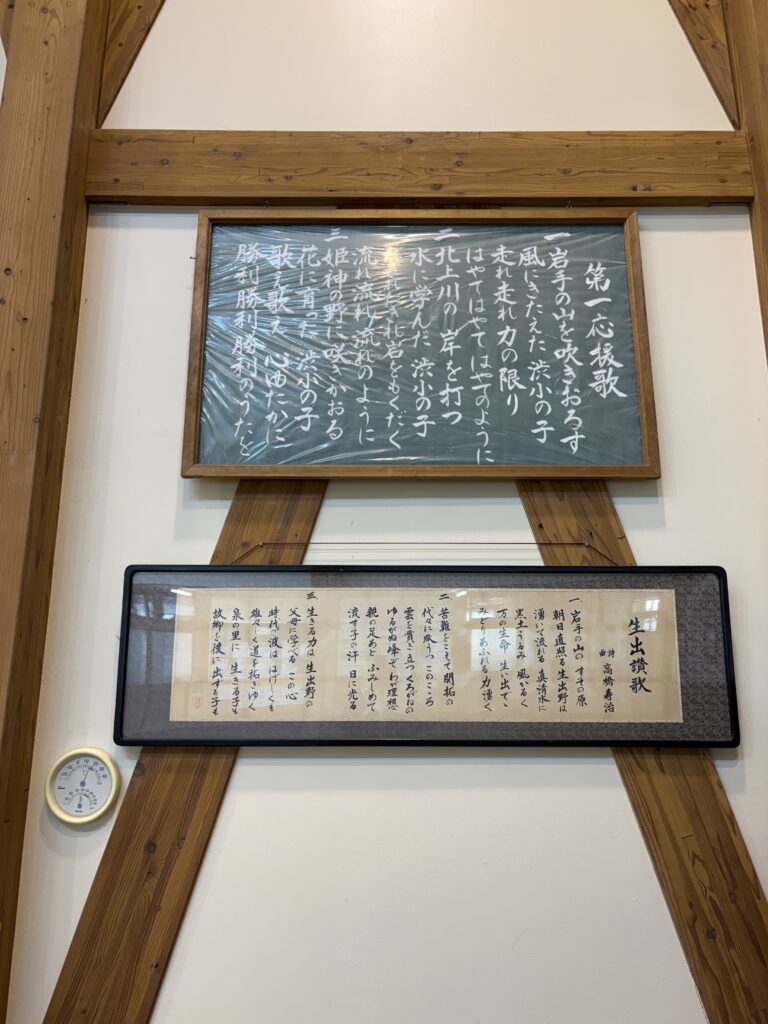 第一応援歌
一 岩手の山を吹きおろす
風にきたえた 渋小の子
走れ走れ 力の限り
はやてはやて はやてのように
二 北上川の 岸を打つ
水に学んだ 渋小の子
くだけ岩をもくだく
流れ流れ 流れのように
三 姫神の野に 咲きかおる
花に育った 渋小の子
歌え歌え 心ゆたかに
勝利 勝利 勝利のうたを
生出讃歌
詩 曲 高橋寿治
一、岩手の山の すその原
朝日直照る 生出野は
湧いて流れる 真清水に
黒土うるみ 風かるく
万の生命 生い出でゝ
みどりあふれる 力湧く
二 苦難をこえて 開拓の
代々に咲うつ このこころ
雲を貫き立つ くろがねの
ゆるがぬ峰ぞ わが理想
親の足あと ふみしめて
流す子の汗 日に光る
三 生きる力は 生出野の
父母に学べる この心
時代の波は はげしくも
雄々しく道を 拓きゆく
泉の里に 生きる子も
故郷を後に 出する子も